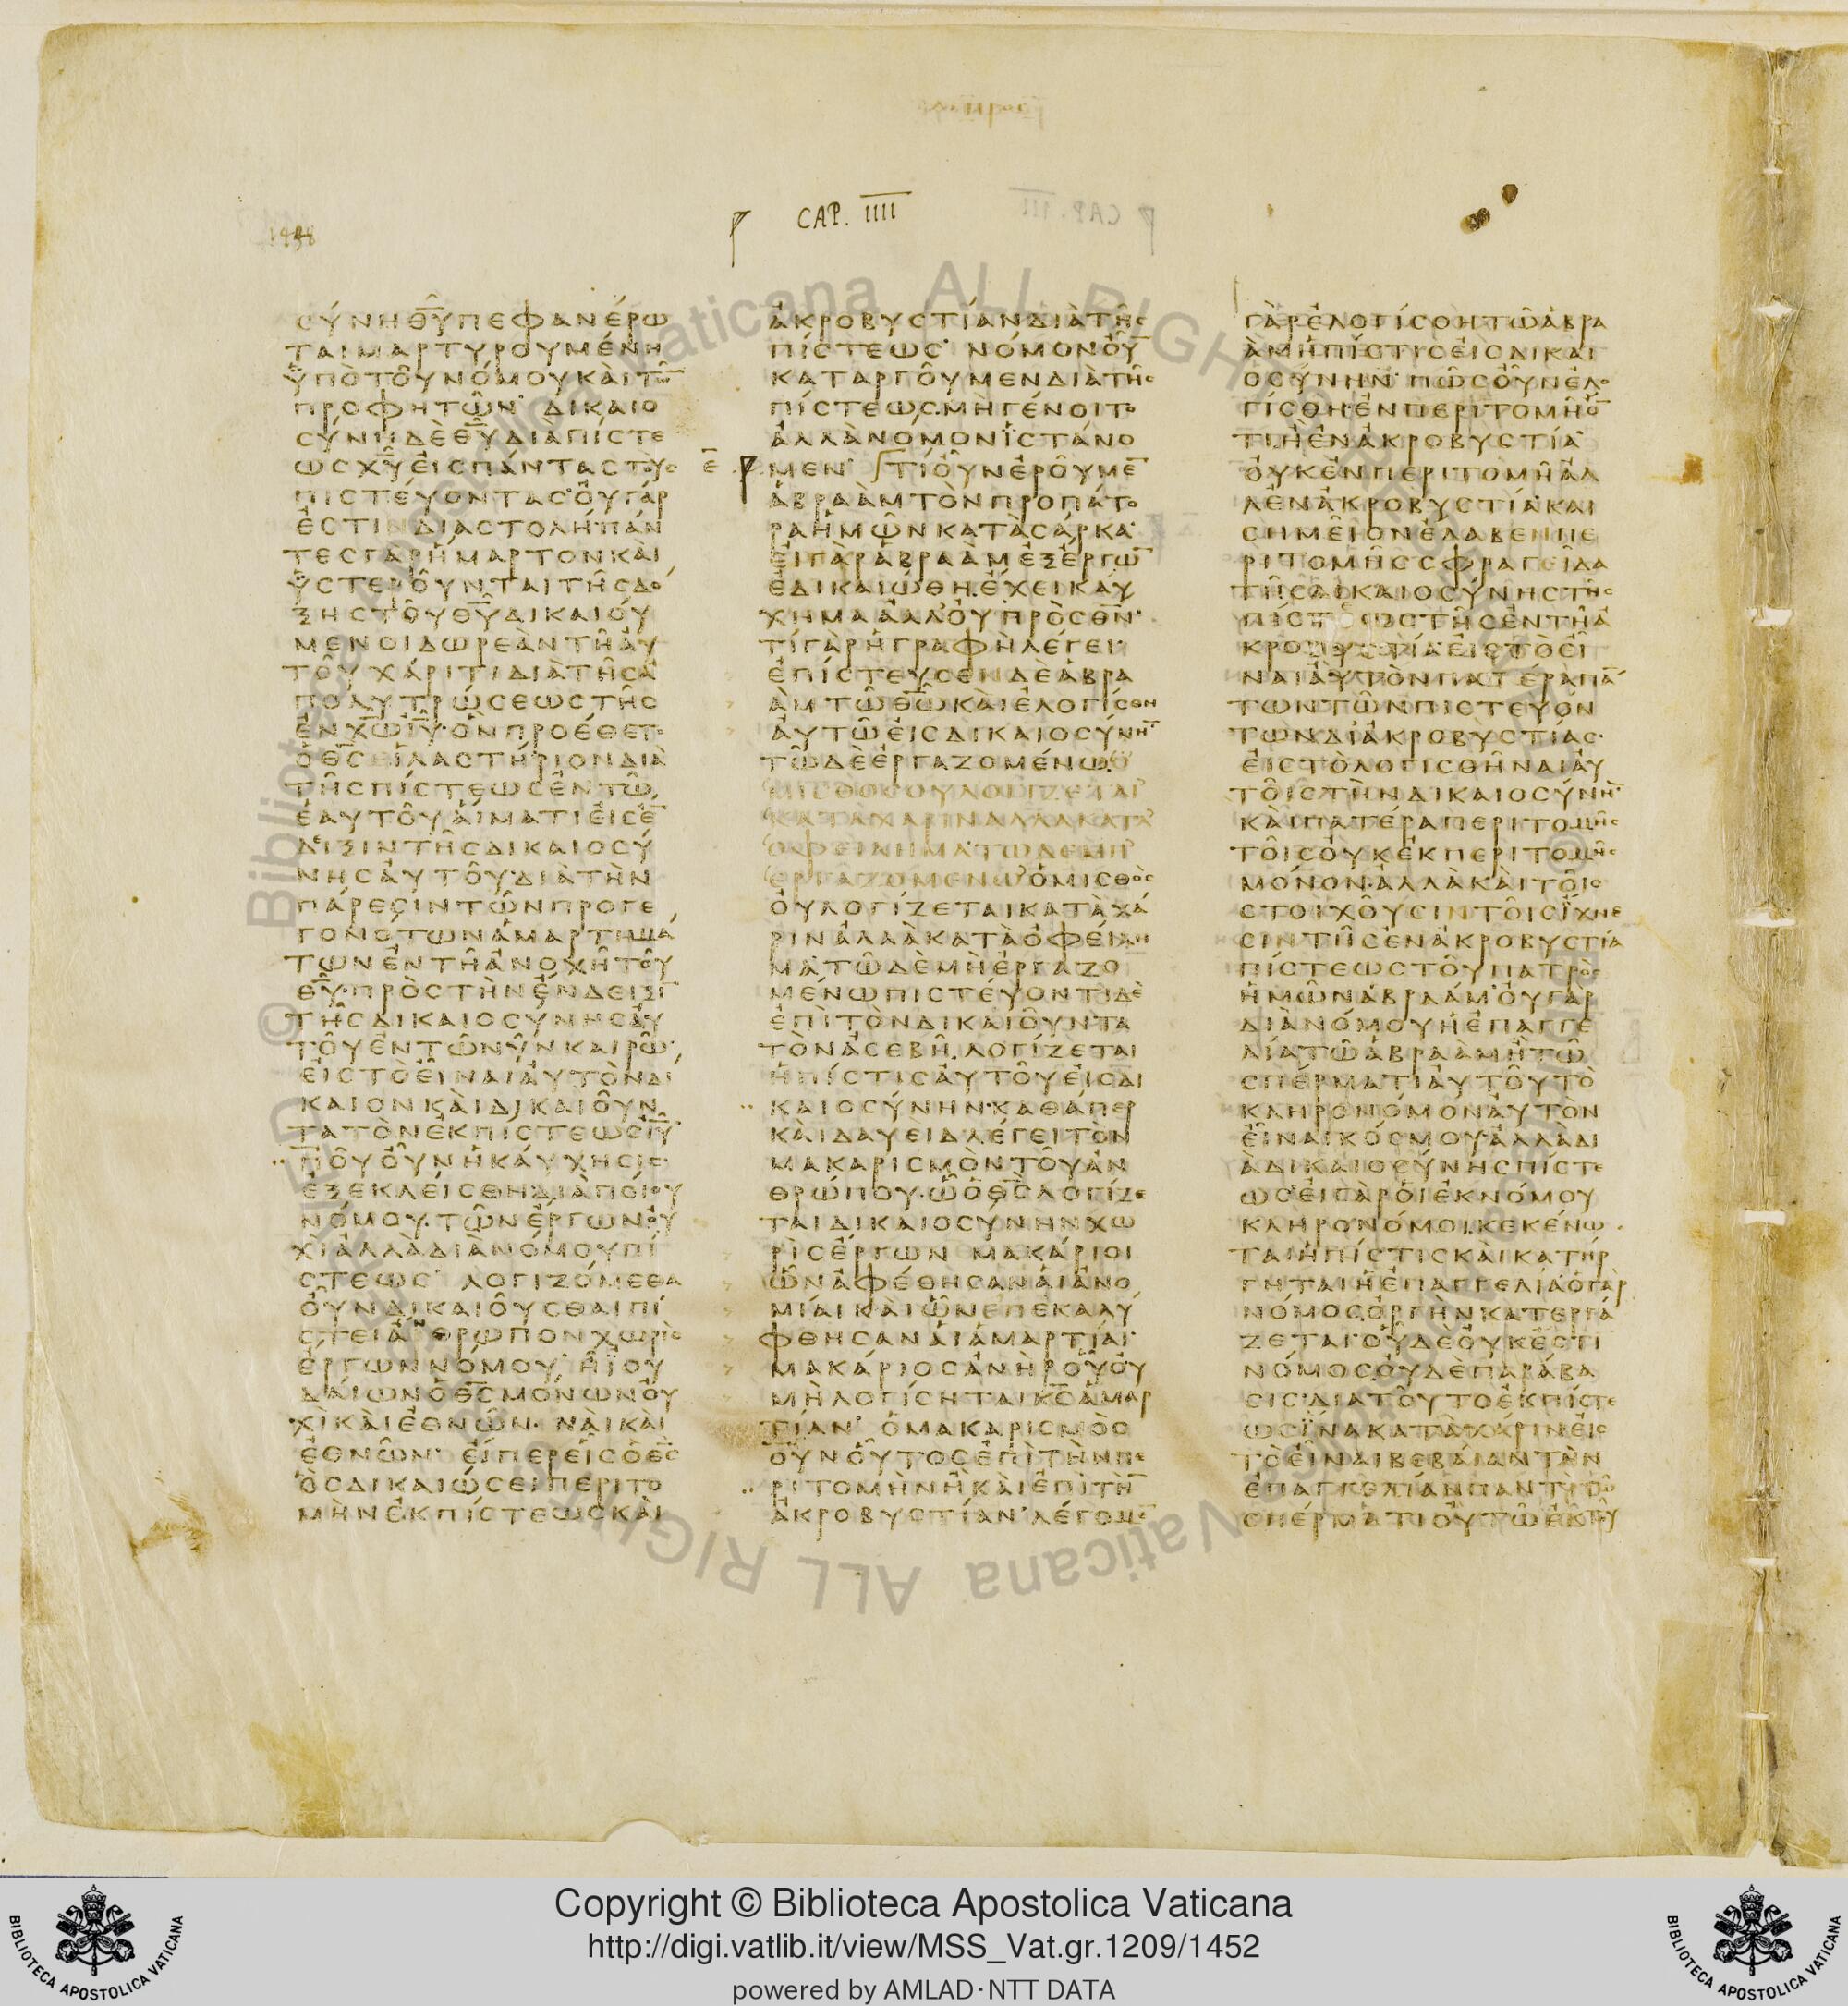 CAP. IIII
1448
ϲύνηθ̅υ̅πεφανέρω
ταιμαρτυρουμένη
ὑπὸτοῦνόμουκαὶτω̅
προφητῶν· δικαιο
ϲύνηδὲθ̅υ̅διαπίϲτε
ωϲχ̅υ̅εἰϲπάνταϲτοὺϲ
πιϲτεύονταϲ·οὐγάρ
ἐϲτινδιαϲτολή·πάν
τεϲγὰρἥμαρτονκαὶ
ὑϲτεροῦνταιτῆϲδο
ξηϲτοῦθ̅υ̅δικαιού
μενοιδωρεὰντῆαὐ
τοῦχάριτιδιὰτῆϲἀ
πολυτρώϲεωϲτῆϲ
ἐνχ̅ω̅ι̅υ̅·ὃνπροέθετο
ὁθ̅ϲ̅ἱλαϲτήριονδιὰ
τῆϲπίϲτεωϲἐντῶ
ἑαυτοῦαἵματιεἰϲἔ̅
δειξιντῆϲδικαιοϲύ
νηϲαὐτοῦ·διὰτὴν
πάρεϲιντῶνπρογε
γονότωνἁμαρτημά
τωνἐντῆἀνοχῆτοῦ
θ̅υ̅·πρὸϲτὴνἔνδειξι̅
τῆϲδικαιοϲύνηϲαὐ
τοῦἐντῶνῦνκαιρῶ·
εἰϲτὸεἶναιαὐτὸνδί
καιονκαὶδικαιοῦν
τατὸνἐκπίϲτεωϲι̅υ̅
ποῦοὖνἡκαύχηϲιϲ·
ἐξεκλείϲθηδιὰποίου
νόμου·τῶνἔργωνοὐ
χὶἀλλὰδιὰνόμουπί
ϲτεωϲ· λογιζόμεθα
οὖνδικαιοῦϲθαιπί
ϲτειἄνθρωπονχωρὶϲ
ἔργωννόμου· ἢἰου
δαίωνὁθ̅ϲ̅μόνωνοὐ
χὶκαὶἐθνῶν· ναὶκαὶ
ἐθνῶν· εἴπερεἷϲὁθ̅ϲ̅
ὃϲδικαιώϲειπεριτο
μὴνἐκπίϲτεωϲκαὶ
ἀκροβυϲτίανδιὰτῆϲ
πίϲτεωϲ· νόμονοὖ̅
καταργοῦμενδιὰτῆϲ
πίϲτεωϲ·μὴγένοιτο
ἀλλὰνόμονἱϲτάνο
ε̅ μεν· τίοὖνἐροῦμε̅
ἀβραὰμτὸνπροπάτο
ραἡμῶνκατὰϲάρκα·
εἰγὰρἀβραὰμἐξἔργω̅
ἐδικαιώθη·ἔχεικαύ
χημαἀλλ᾽οὐπρὸϲθ̅ν̅·
τίγὰρἡγραφὴλέγει·
ἐπίϲτευϲενδὲἀβρα
ὰμτῶθ̅ω̅καὶἐλογίϲθη
αὐτῶεἰϲδικαιοϲύνη̅
τῶδὲἐργαζομένωο
μιϲθοϲουλογιζεται
καταχαριναλλακατα
οφειληματωδεμη
εργαζομενωὁμιϲθὸϲ
οὐλογίζεταικατὰχά
ρινἀλλὰκατὰὀφείλη
μα·τῶδὲμὴἐργαζο
μένωπιϲτεύοντιδὲ
ἐπὶτὸνδικαιοῦντα
τὸνἀϲεβῆ·λογίζεται
ἡπίϲτιϲαὐτοῦεἰϲδι
καιοϲύνην·καθάπερ
καὶδαυειδλέγειτὸν
μακαριϲμὸντοῦἀν
θρώπου·ὧὁθ̅ϲ̅λογίζε
ταιδικαιοϲύνηνχω
ρὶϲἔργων μακάριοι
ὧνἀφέθηϲαναἱἀνο
μίαικαὶὧνἐπεκαλύ
φθηϲαναἱἁμαρτίαι·
μακάριοϲἀνὴροὗοὐ
μὴλογίϲηταικ̅ϲ̅ἁμαρ
τίαν· ὁμακαριϲμὸϲ
οὖνοὗτοϲἐπὶτὴνπε
ριτομὴνἢκαὶἐπὶτὴ̅
ἀκροβυϲτίαν·λέγομε̅
γὰρἐλογίϲθητῶἀβρα
ὰμἡπίϲτιϲεἰϲδικαι
οϲύνην· πῶϲοὖνἐλο
γίϲθη·ἐνπεριτομῆὄ̅
τιἢἐνἀκροβυϲτία·
οὐκἐνπεριτομῆἀλ
λἐνἀκροβυϲτία·καὶ
ϲημεῖονἔλαβενπε
ριτομῆϲϲφραγεῖδα
τῆϲδικαιοϲύνηϲτῆϲ
πίϲτεωϲτῆϲἐντῆἀ
κροβυϲτία·εἰϲτὸεἶ
ναιαὐτὸνπατέραπά̅
τωντῶνπιϲτευόν
τωνδι᾽ἀκροβυϲτίαϲ·
εἰϲτὸλογιϲθῆναιαὐ
τοῖϲτὴνδικαιοϲύνη̅·
καὶπατέραπεριτομῆϲ
τοῖϲοὐκἐκπεριτομῆϲ
μόνον·ἀλλὰκαὶτοῖϲ
ϲτοιχοῦϲιντοῖϲἴχνε
ϲιντῆϲἐνἀκροβυϲτία
πίϲτεωϲτοῦπατρὸϲ
ἡμῶνἀβραάμ·οὐγὰρ
διὰνόμουἡἐπαγγε
λίατῶἀβραὰμἢτῶ
ϲπέρματιαὐτοῦτὸ
κληρονόμοναὐτὸν
εἶναικόϲμου·ἀλλὰδι
ὰδικαιοϲύνηϲπίϲτε
ωϲ·εἰγὰροἱἐκνόμου
κληρονόμοι·κεκένω
ταιἡπίϲτιϲκαὶκατήρ
γηταιἡἐπαγγελία·ὁγὰρ
νόμοϲὀργὴνκατεργά
ζεται·οὗδὲοὐκἔϲτι
νόμοϲοὐδὲπαράβα
ϲιϲ·διατοῦτοἐκπίϲτε
ωϲἵνακατὰχάρινεἰϲ
τὸεἶναιβεβαίαντὴν
ἐπαγγελίανπαντὶτῶ
ϲπέρματιοὐτῶἐκτοῦ
Copyright © Biblioteca Apostolica Vaticana
http://digi.vatlib.it/view/MSS_Vat.gr.1209/1452
powered by AMLAD·NTT DATA
BIBLIOTECA APOSTOLICA VATICANA
BIBLIOTECA APOSTOLICA VATICANA